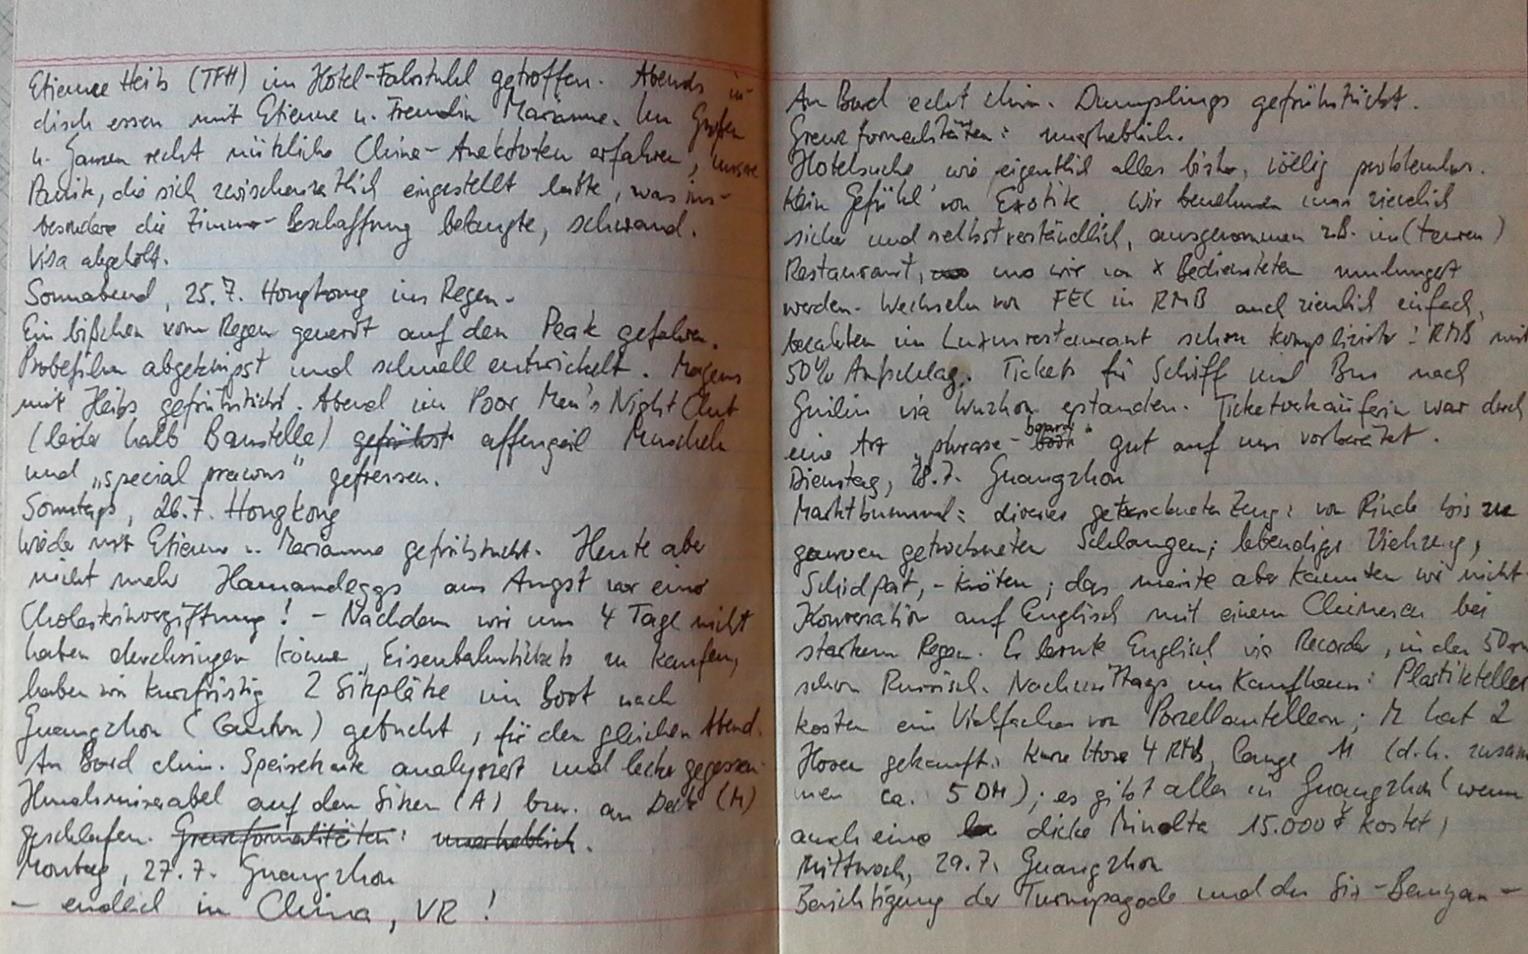 Etienne Heib (TFH) im Hotel-Fahrstuhl getroffen. Abends in-
disch essen mit Etienne u. Freundin Marianne. Im Großen
u. Ganzen recht nützliche China-Anekdoten erfahren, unsere
Panik, die sich zwischenzeitlich eingestellt hatte, was ins-
besondere die Zimmer-Beschaffung belangte, schwand.
Visa abgeholt.
Sonnabend, 25.7. Hongkong im Regen.
Ein bißchen vom Regen genervt auf den Peak gefahren.
Probefilm abgeknipst und schnell entwickelt. Morgens
mit Heibs gefrühstückt. Abend im Poor Men's Night Club
(leider halb Baustelle) gefrühst affengeil Muscheln
und „special prawns" gefressen.
Sonntags, 26.7. Hongkong
wieder mit Etienne u. Marianne gefrühstückt. Heute aber
nicht mehr Hamandeggs aus Angst vor einer
Cholesterinvergiftung! - Nachdem wir uns 4 Tage nicht
haben durchringen können, Eisenbahntickets zu kaufen,
haben wir kurzfristig 2 Sitzplätze im Boot nach
Guangzhou (Canton) gebucht, für den gleichen Abend.
An Bord chin. Speisekarte analysiert und lecker gegessen.
Hundsmiserabel auf den Sitzen (A) bzw. an Deck (M)
geschlafen. Grenzformalitäten: unerheblich.
Montag, 27.7. Guangzhou
- endlich in China, VR!
An Bord echt chin. Dumplings gefrühstückt.
Grenzformalitäten: unerheblich.
Hotelsuche, wie eigentlich alles bisher, völlig problemlos.
Kein Gefühl von Exotik. Wir benehmen uns ziemlich
sicher und selbstverständlich, ausgenommen z.B. im (teuren)
Restaurant, wo wir von x Bediensteten umlungert
werden. Wechseln von FEC in RMB auch ziemlich einfach,
bezahlen im Luxusrestaurant schon komplizierter: RMB mit
50% Aufschlag. Tickets für Schiff und Bus nach
Guilin via Wuzhou erstanden. Ticketverkäuferin war durch
eine Art „phrase-board" gut auf uns vorbereitet.
Dienstag, 28.7. Guangzhou
Marktbummel: diverses getrocknetes Zeug: von Rinde bis zu
ganzen getrockneten Schlangen; lebendiges Viehzeug,
Schildpatt, -kröten; das meiste aber kannten wir nicht.
Konversation auf Englisch mit einem Chinesen bei
starkem Regen. Er lernte Englisch via Recorder, in den 50ern
schon Russisch. Nachmittags im Kaufhaus: Plastikteller
kosten ein Vielfaches von Porzellantellern; M hat 2
Hosen gekauft: kurze Hose 4 RMB, lange 11 (d.h. zusam
men ca. 5 DM); es gibt alles in Guangzhou (wenn
auch eine dicke Minolta 15.000 ¥ kostet)
Mittwoch, 29.7. Guangzhou
Besichtigung der Turmpagode und des Six-Banyan-